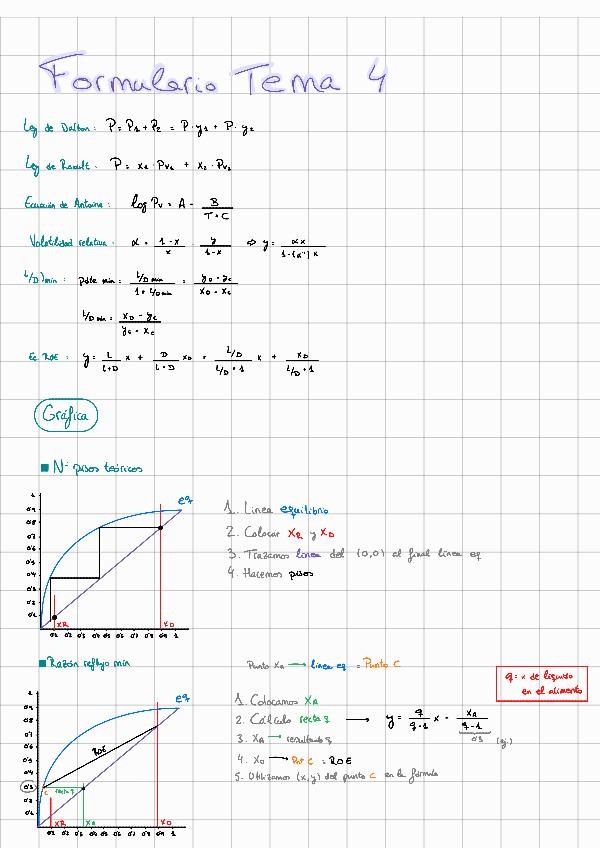 Formulario Tema 4
Ley de Dalton: P = P1 + P2 = P · y1 + P · y2
Ley de Raoult: P = x1 · Pv1 + x2 · Pv2
Ecuación de Antoine: log Pv = A - B / T + C
Volatilidad relativa: α = 1-x / x · y / 1-x ⇒ y = αx / 1-(α-1)x
L/D)min: pdte min = L/D min / 1+L/D min = yD - yC / xD - xC
L/D min = xD - yC / yC - xC
Ec ROE: y = L / L+D x + D / L+D xD = L/D / L/D+1 x + xD / L/D+1
Gráfica
■ Nº pisos teóricos
eq
1. Linea equilibrio
2. Colocar XR y XD
3. Trazamos linea del (0,0) al final linea eq
4. Hacemos pisos
1
0'9
0'8
0'7
0'6
0'5
0'4
0'3
0'2
0'1
XR XD
0'1 0'2 0'3 0'4 0'5 0'6 0'7 0'8 0'9 1
■ Razón reflujo min
Punto XA → linea eq = Punto C
q = x de liquido
en el alimento
eq
1. Colocamos XA
2. Cálculo recta q → y = q / q-1 x - XA / q-1
0'3 (ej.)
3. XA → resultado q
4. XD → Pnt C = ROE
5. Utilizamos (x,y) del punto C en la fórmula
ROE
C recta q
XR XA XD
0'1 0'2 0'3 0'4 0'5 0'6 0'7 0'8 0'9 1